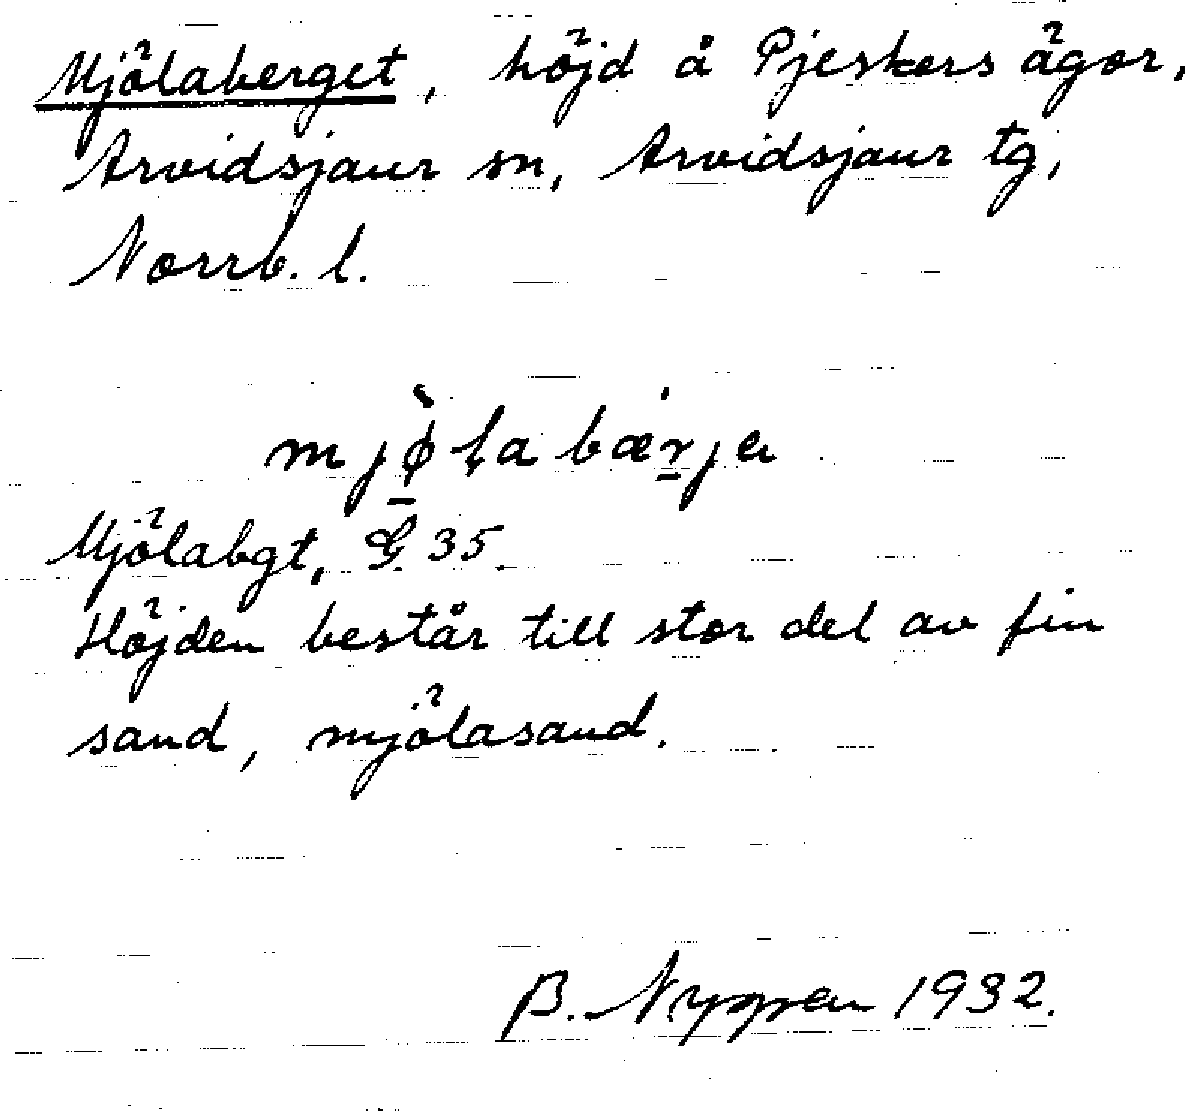 Mjölaberget, höjd å Pjeskers ägor,
Arvidsjaur sn, Arvidsjaur tg,
Norrb. l.
mjø̀ḷabæ̀rja
Mjölabgt, G. 35.
Höjden består till stor del av fin
sand, mjölasand.
B. Nygren 1932.